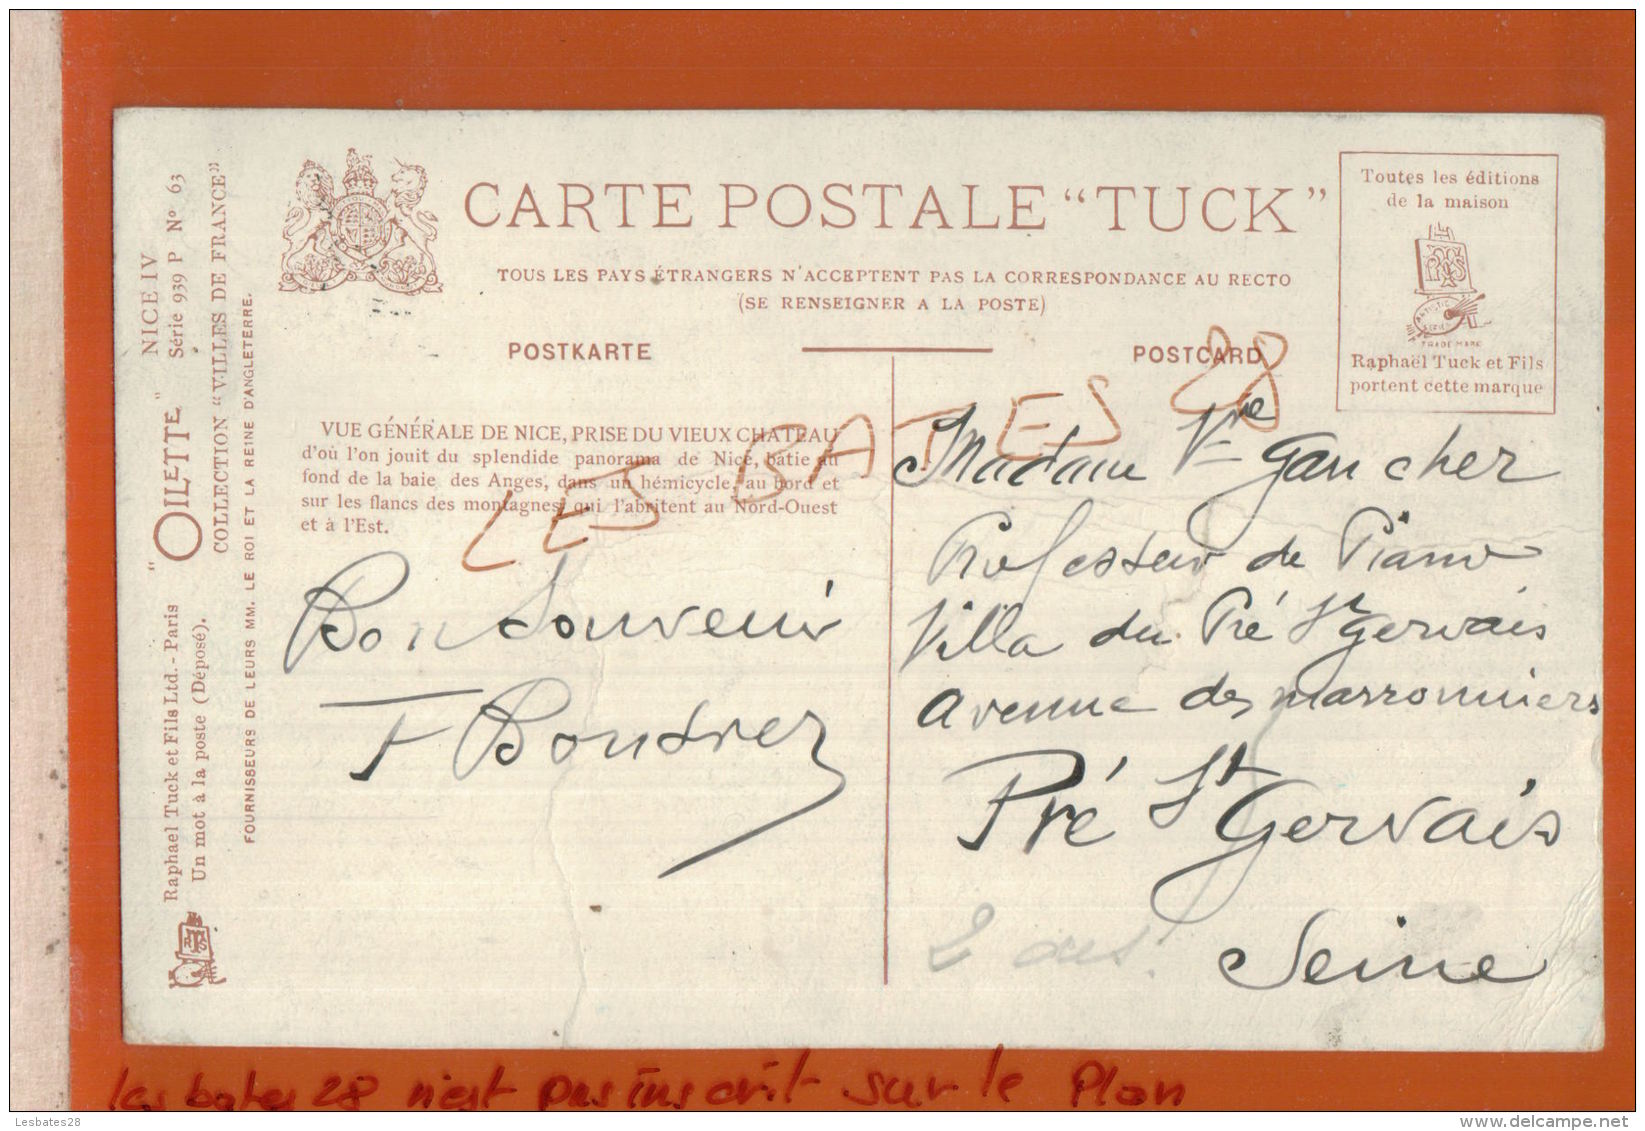 CARTE POSTALE "TUCK"
TOUS LES PAYS ÉTRANGERS N'ACCEPTENT PAS LA CORRESPONDANCE AU RECTO
(SE RENSEIGNER A LA POSTE)
POSTKARTE
POSTCARD
Toutes les éditions
de la maison
ARTISTIC
SERIES
TRADE MARK
Raphaël Tuck et Fils
portent cette marque
NICE IV
Série 939 P Nº 63
"OILETTE"
COLLECTION "VILLES DE FRANCE"
Raphael Tuck et Fils Ltd. - Paris
Un mot à la poste (Déposé).
FOURNISSEURS DE LEURS MM. LE ROI ET LA REINE D'ANGLETERRE.
VUE GÉNÉRALE DE NICE, PRISE DU VIEUX CHATEAU
d'où l'on jouit du splendide panorama de Nice, bâtie au
fond de la baie des Anges, dans un hémicycle, au bord et
sur les flancs des montagnes, qui l'abritent au Nord-Ouest
et à l'Est.
LES BATES 28
Bon Souvenir
F Boudrez
Madame Vve Gaucher
Professeur de Piano
Villa du Pré St Gervais
Avenue des marronniers
Pré St Gervais
Seine
les bates 28 n'est pas inscrit sur le Plan
Lesbates28
www.delcampe.net